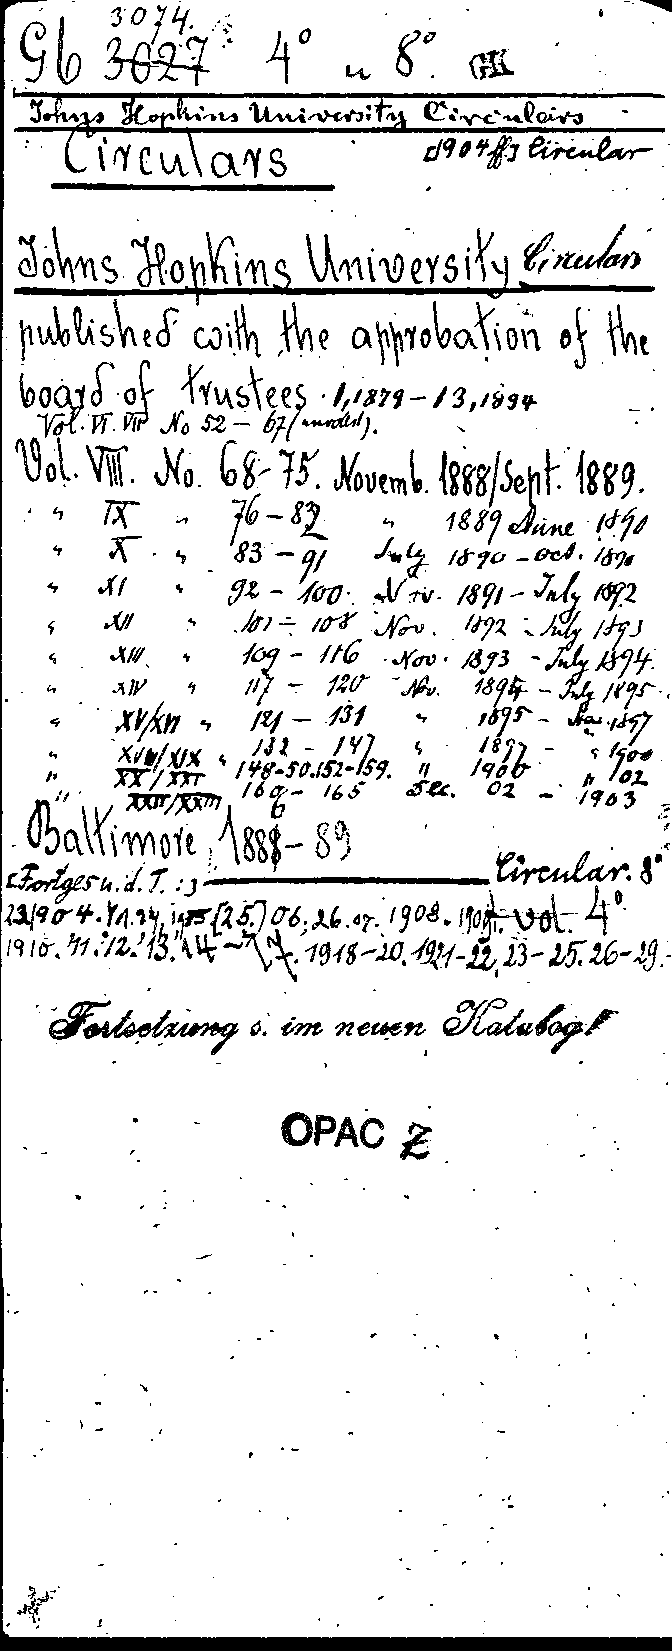 3074.
Gb 3027 4° u 8°.
Johns Hopkins University Circulars
Circulars [1904ff] Circular
Johns Hopkins University Circulars
published with the approbation of the
board of trustees. 1,1879-13,1894
Vol. VI. VII No 52-67
Vol. VIII. No. 68-75. Novemb. 1888/Sept. 1889.
" IX " 76-82 " 1889 June 1890
" X. " 83-91 July 1890-Oct. 1891
" XI " 92-100. Nov. 1891-July 1892
" XII " 101-108 Nov. 1892-July 1893
" XIII " 109-116 Nov. 1893-July 1894.
" XIV " 117-120 Nov. 1894-July 1895.
" XV/XVI " 121-131 " 1895-1897
" XVIII/XIX " 132-147 " 1897-" 1900
" XX/XXI 148-50.152-159. " 1900 " 02
" XXII/XXIII 160-165 Dec. 02-1903
Baltimore 1888-89
[Fortges u. d. T.:] Circular. 8°
1904. 06, 26. 07. 1908. vol. 4°
1910. 11. 12. 13. 14-17. 1918-20. 1921-22, 23-25. 26-29.
Fortsetzung s. im neuen Katalog!
OPAC Z